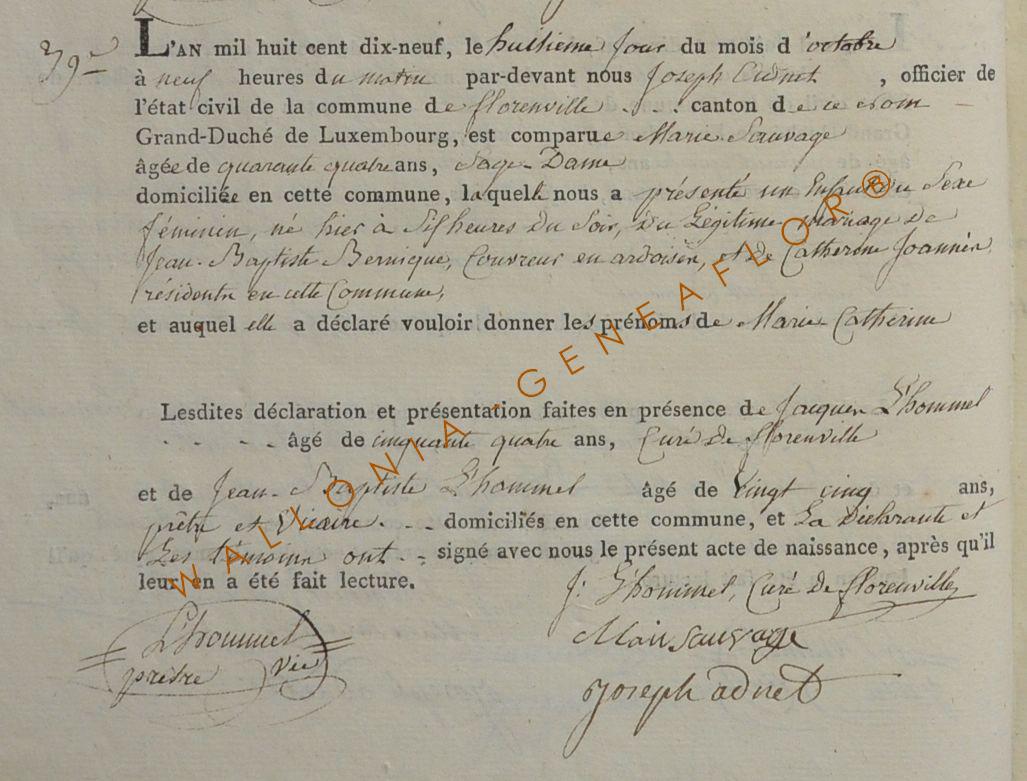 39e
L'AN mil huit cent dix-neuf, le huitieme jour du mois d'octobre
à neuf heures du matin par-devant nous Joseph Adnet, officier de
l'état civil de la commune de florenville canton de ce nom
Grand-Duché de Luxembourg, est comparue Marie Sauvage
âgée de quarante quatre ans, Sage-Dame
domiciliée en cette commune, laquelle nous a présenté un Enfant du Sexe
féminin, né hier à heures du Soir, du Légitime mariage de
Jean-Baptiste Bernique, Couvreur en ardoises, et de Catherine Joannès
résidents en cette Commune,
et auquel elle a déclaré vouloir donner les prénoms de Marie Catherine
Lesdites déclaration et présentation faites en présence de Jacques L'hommel
âgé de cinquante quatre ans, Curé de florenville
et de Jean-Baptiste L'hommel âgé de Vingt cinq ans,
prêtre et Vicaire domiciliés en cette commune, et La Déclarante et
Les témoins ont signé avec nous le présent acte de naissance, après qu'il
leur en a été fait lecture.
J: L'hommel, Curé de florenville
L'hommel
prêtre vic
Mari sauvage
joseph adnet
WALLONIA-GENEAFLOR®